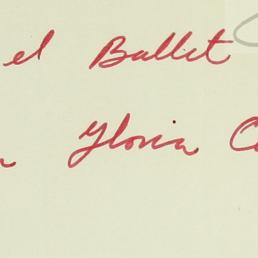 el Ballet
Gloria